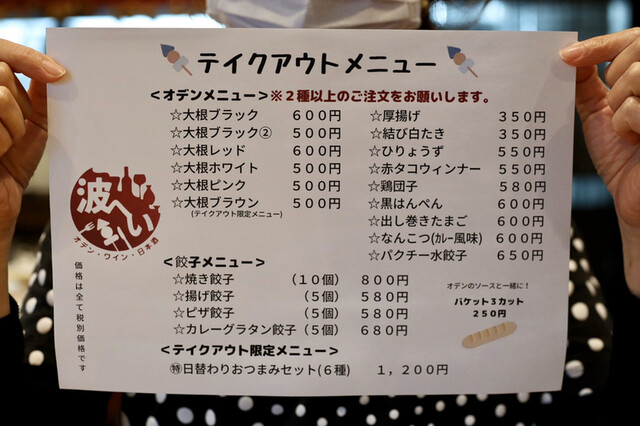 テイクアウトメニュー
<オデンメニュー>※２種以上のご注文をお願いします。
☆大根ブラック ６００円
☆大根ブラック② ５００円
☆大根レッド ６００円
☆大根ホワイト ５００円
☆大根ピンク ５００円
☆大根ブラウン ５００円
(テイクアウト限定メニュー)
☆厚揚げ ３５０円
☆結び白たき ３５０円
☆ひりょうず ５５０円
☆赤タコウィンナー ５５０円
☆鶏団子 ５８０円
☆黒はんぺん ６００円
☆出し巻きたまご ６００円
☆なんこつ(カレー風味) ６００円
☆パクチー水餃子 ６５０円
波へい
オデン・ワイン・日本酒
価格は全て税別価格です
<餃子メニュー>
☆焼き餃子 （１０個） ８００円
☆揚げ餃子 （５個） ５８０円
☆ピザ餃子 （５個） ５８０円
☆カレーグラタン餃子（５個） ６８０円
オデンのソースと一緒に！
バケット３カット
２５０円
<テイクアウト限定メニュー>
㊕日替わりおつまみセット(６種) １，２００円